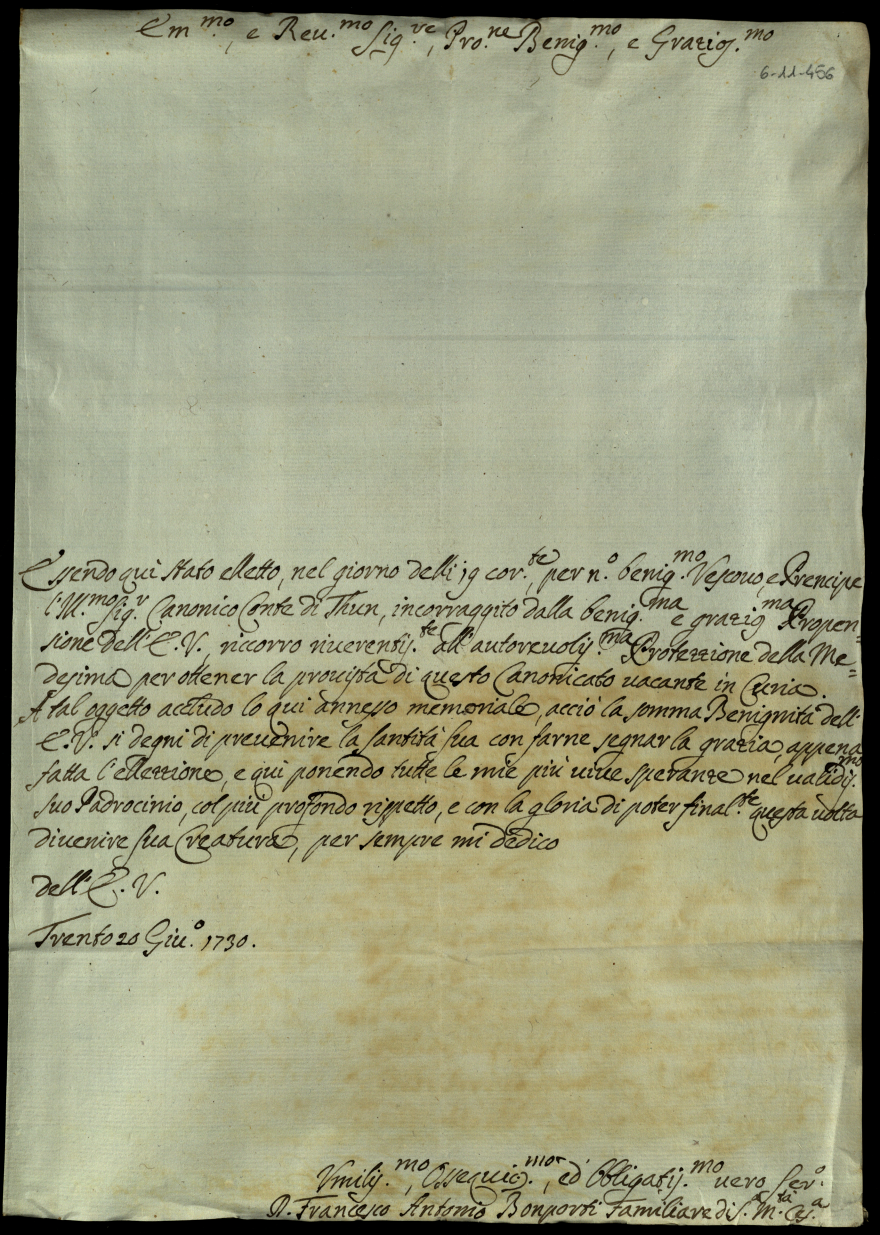 Em.mo, e Reu.mo Sig.re, Pro.ne Benig.mo, e Grazios.mo
6-11-456
Essendo qui stato elletto, nel giorno delli 19 cor.te, per n.o benig.mo Vescouo, e Prencipe
l'Ill.mo Sig.r Canonico Conte di Thun, incorraggito dalla benig.ma e grazig.ma Propen=
sione dell'E.V., riccorro riuerentis.te all'autoreuolis.ma Protezzione della Me=
desima per ottener la prouista di questo Canonicato uacante in Curia.
A tal oggetto accludo lo qui annesso memoriale, acciò la somma Benignità dell'
E.V. si degni di preuenire la Santità Sua con farne segnar la grazia, appena
fatta l'ellezzione, e qui ponendo tutte le mie più uiue speranze nel ualidis.mo
suo Padrocinio, col più profondo rispetto, e con la gloria di poter final.te questa uolta
diuenire sua Creatura, per sempre mi dedico
dell'E.V.
Trento 20 Giu.o 1730.
Vmilis.mo, Ossequio.mo, ed Obligatis.mo uero Ser.o
D. Francesco Antonio Bonporti Familiare di S. M.tà Ces.a